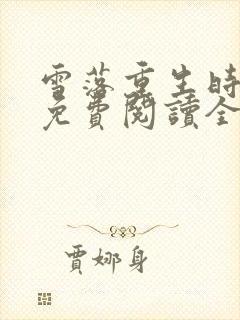 雪落重生時
免費閱讀全
賈娜身